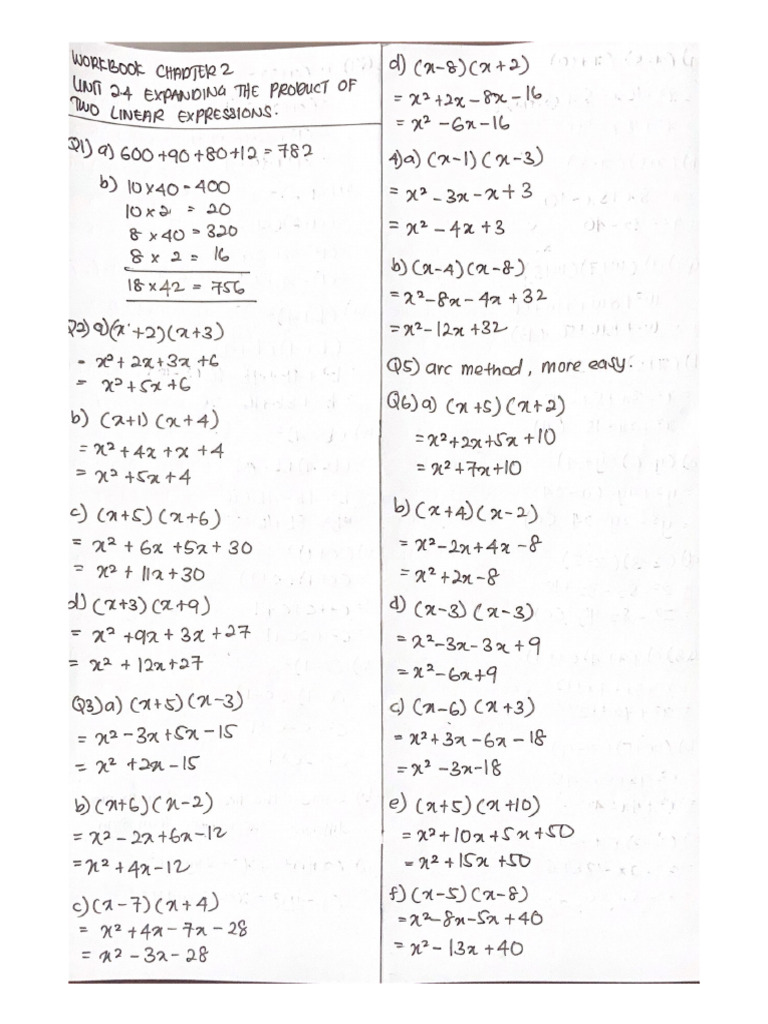 WORKBOOK CHAPTER 2
UNIT 2.4 EXPANDING THE PRODUCT OF
TWO LINEAR EXPRESSIONS.
Q1) a) 600+90+80+12=782
b) 10×40=400
10×2 = 20
8×40=320
8×2 = 16
18×42=756
Q2) a)(x+2)(x+3)
= x²+2x+3x+6
= x²+5x+6
b) (x+1)(x+4)
= x²+4x+x+4
= x²+5x+4
c) (x+5)(x+6)
= x²+6x+5x+30
= x²+11x+30
d) (x+3)(x+9)
= x²+9x+3x+27
= x²+12x+27
Q3)a) (x+5)(x-3)
= x²-3x+5x-15
= x²+2x-15
b)(x+6)(x-2)
=x²-2x+6x-12
=x²+4x-12
c)(x-7)(x+4)
= x²+4x-7x-28
= x²-3x-28
d) (x-8)(x+2)
= x²+2x-8x-16
= x²-6x-16
4)a) (x-1)(x-3)
= x²-3x-x+3
= x²-4x+3
b)(x-4)(x-8)
=x²-8x-4x+32
=x²-12x+32
Q5) arc method, more easy.
Q6)a) (x+5)(x+2)
=x²+2x+5x+10
=x²+7x+10
b)(x+4)(x-2)
=x²-2x+4x-8
=x²+2x-8
d) (x-3)(x-3)
=x²-3x-3x+9
=x²-6x+9
c) (x-6)(x+3)
=x²+3x-6x-18
=x²-3x-18
e) (x+5)(x+10)
=x²+10x+5x+50
=x²+15x+50
f)(x-5)(x-8)
=x²-8x-5x+40
=x²-13x+40